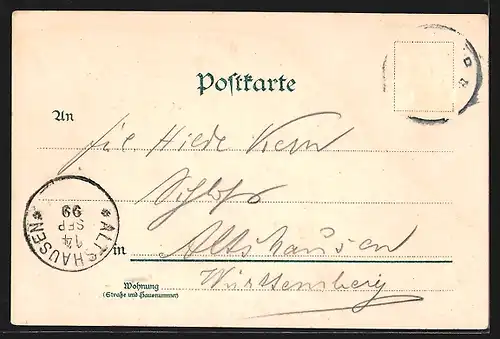 Postkarte
An
Frl. Hilde Kern
Schloss
in Altshausen
Württemberg
Wohnung
(Straße und Hausnummer)
* ALTSHAUSEN *
14
SEP
99